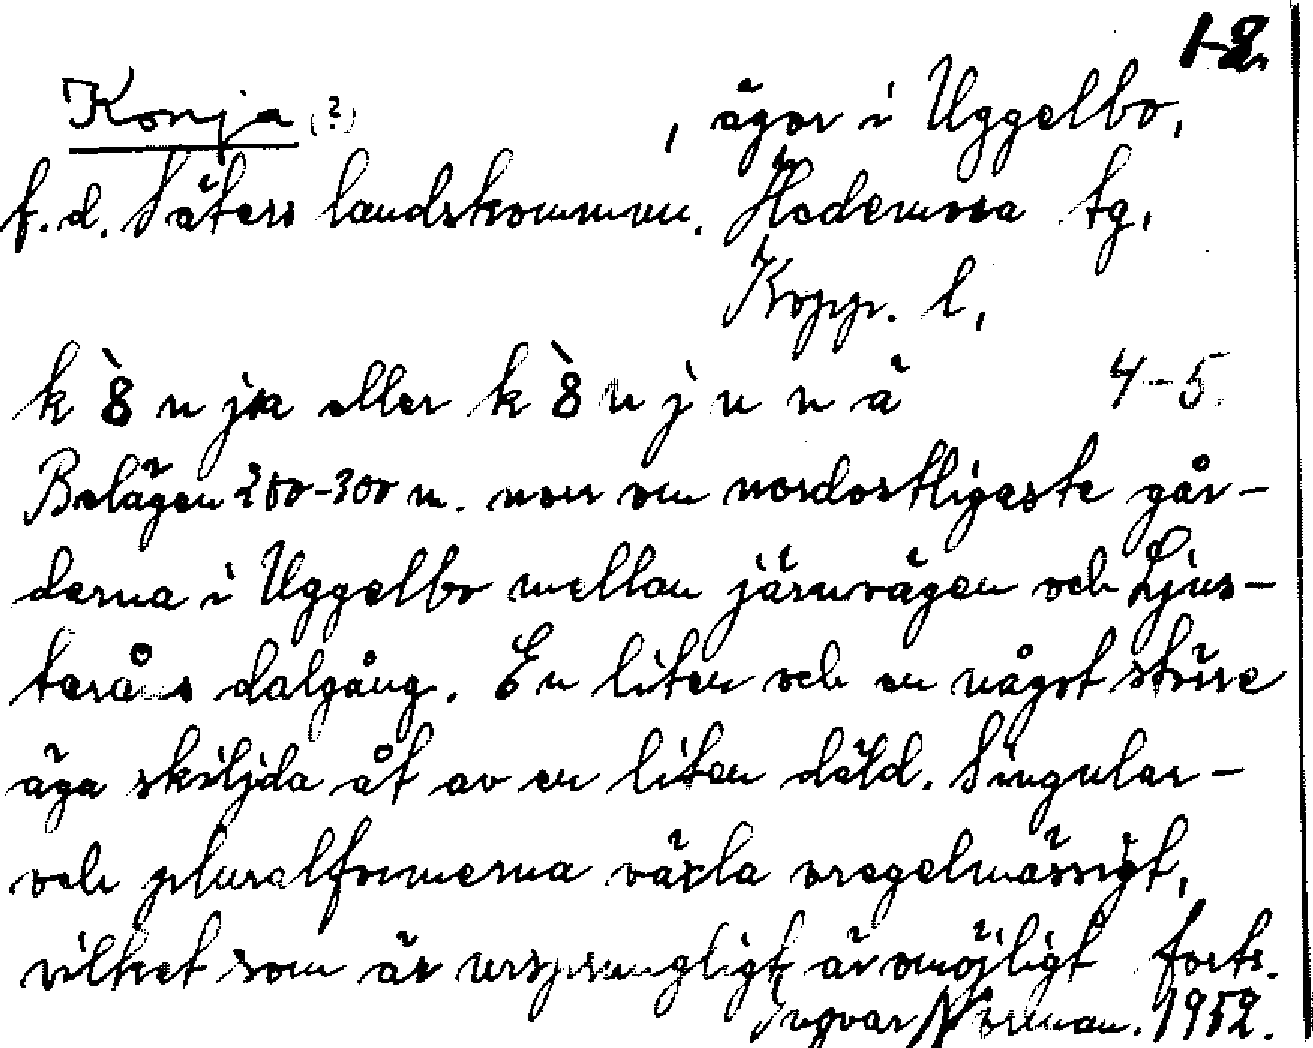 1-2.
Konja (?) , ägor i Uggelbo,
f.d. Säters landskommun. Hedemora tg,
Kopp. l,
k ò8 n ja eller k ò8 n j u n ä 4-5.
Belägen 250-300 m. norr om nordostligaste går-
darna i Uggelbo mellan järnvägen och Ljus-
teråns dalgång. En liten och en något större
äga skiljda åt av en liten däld. Singular-
och pluralformerna växla oregelmässigt,
vilket som är ursprungligt är omöjligt forts.
Ingvar Norman. 1952.